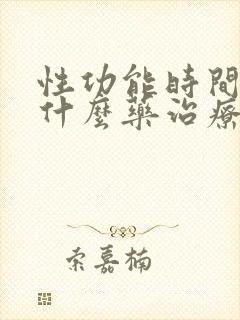 性功能時間
什麼藥治療
索嘉楠